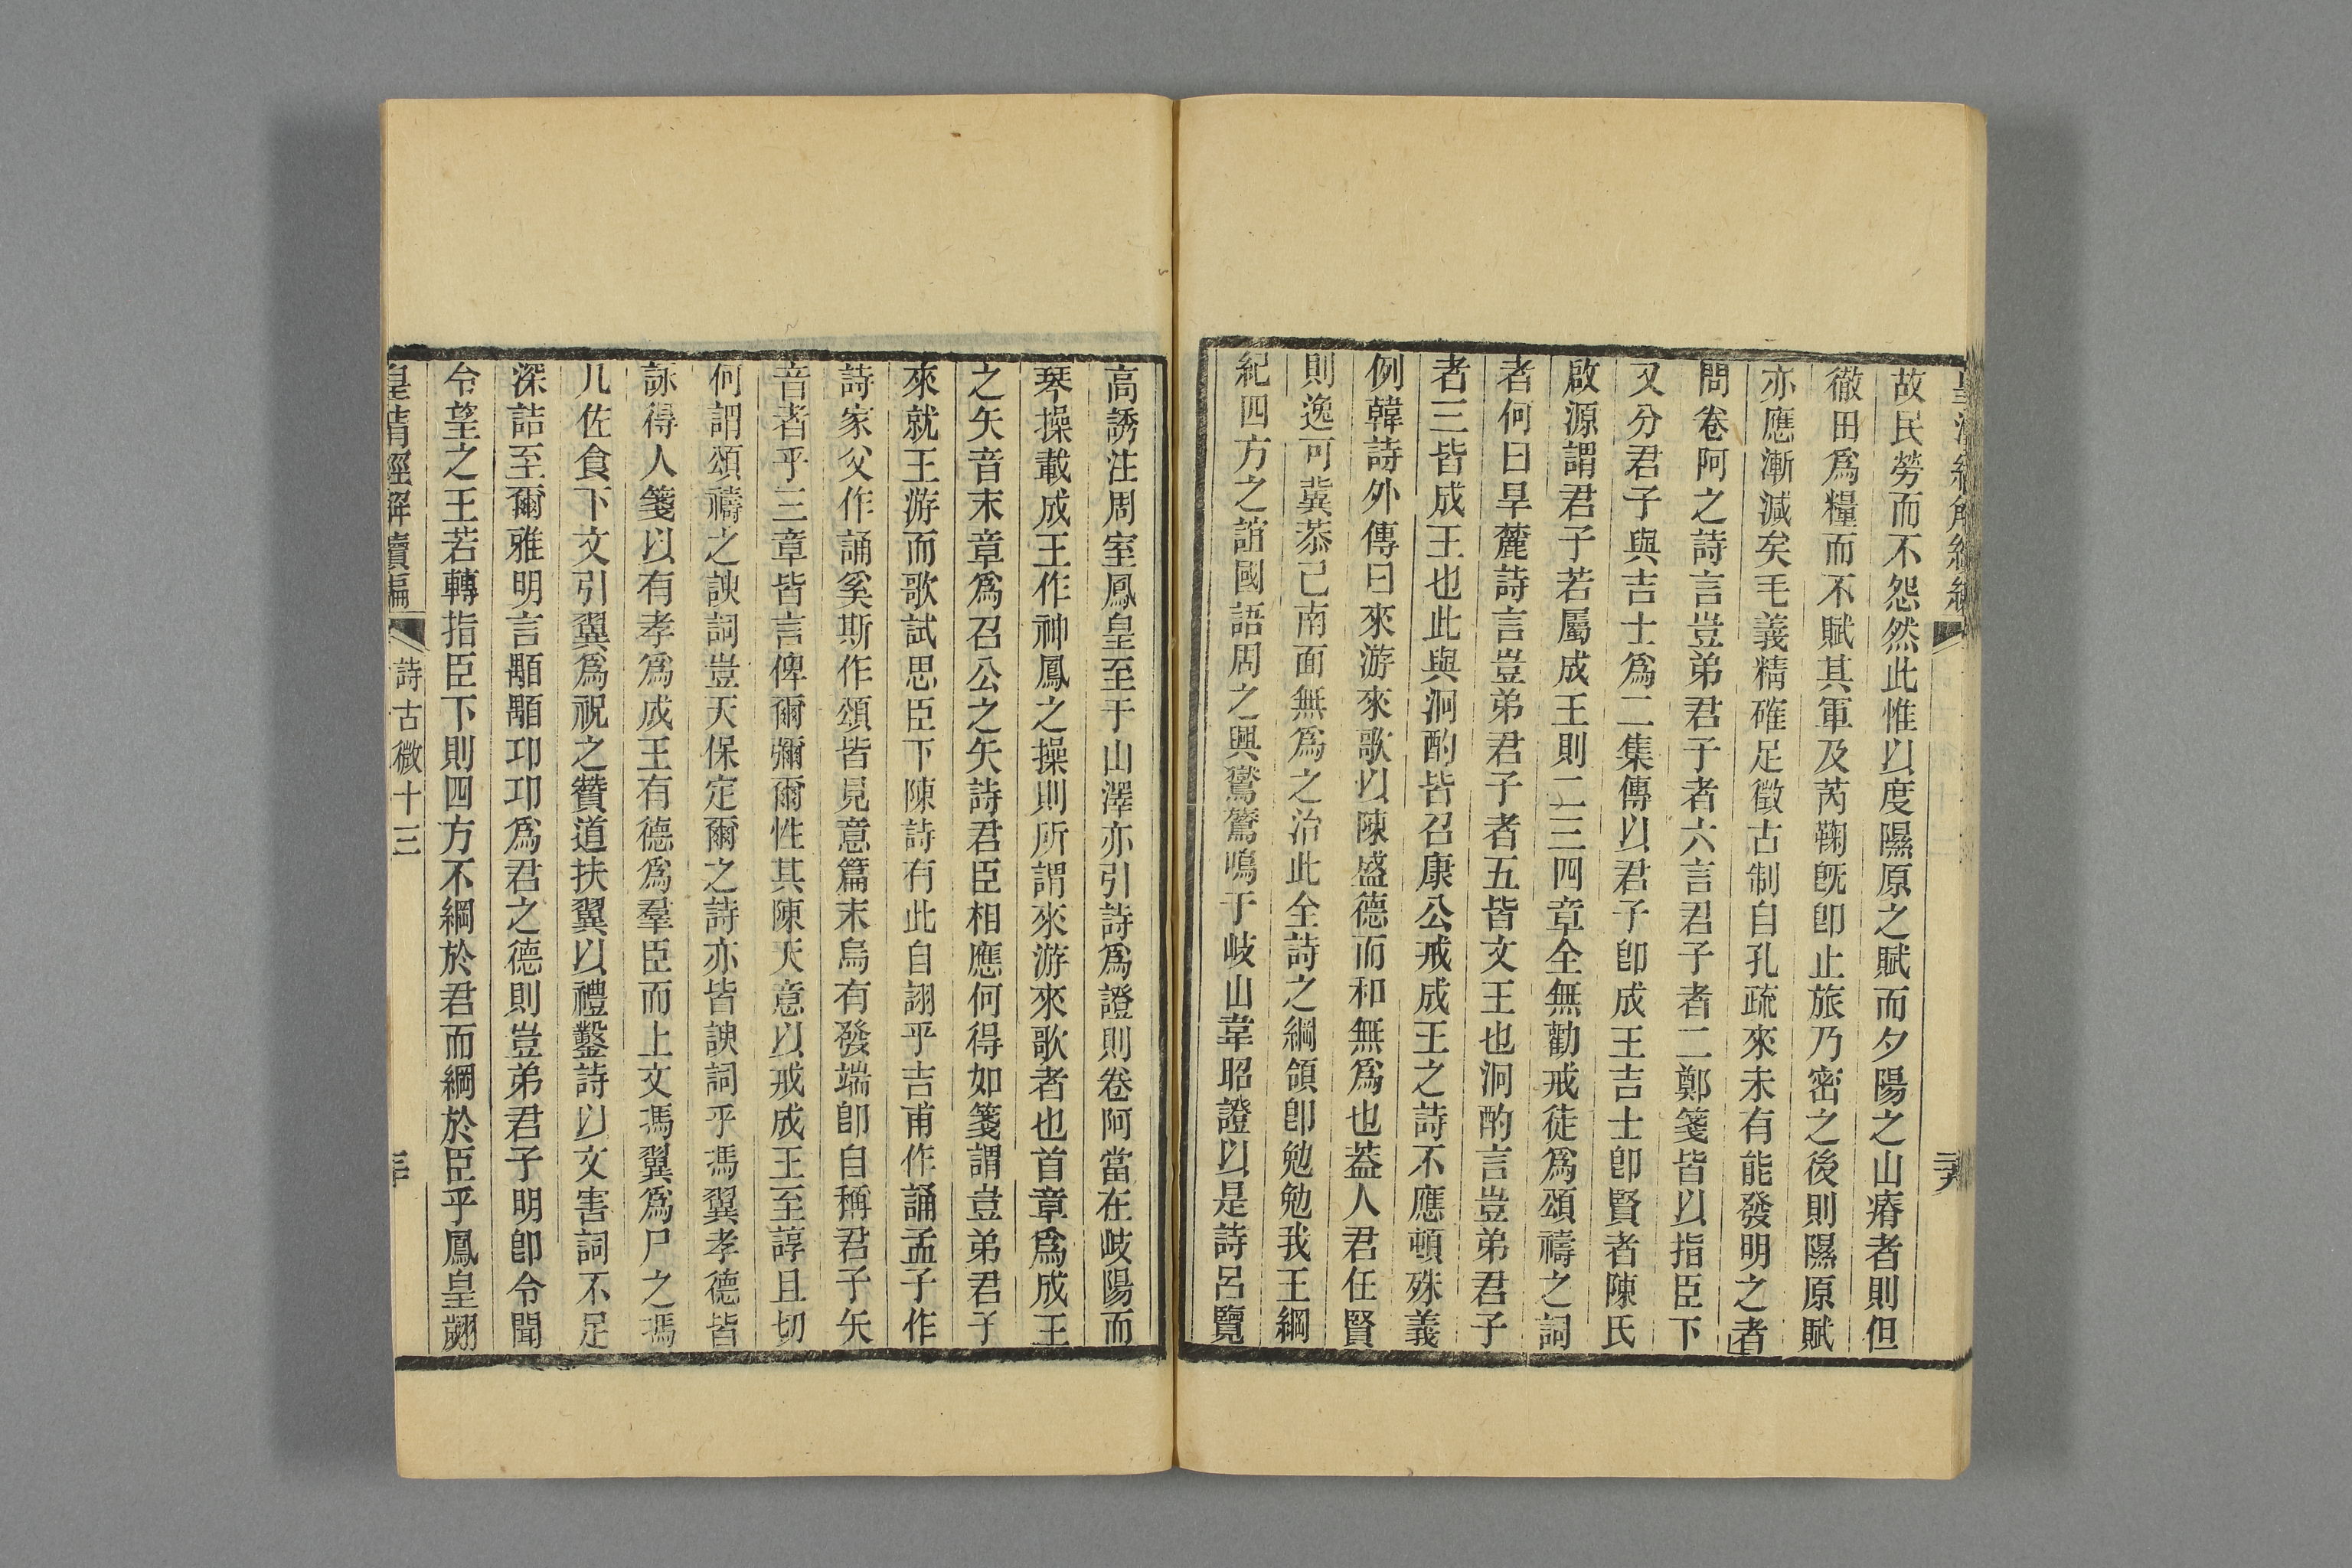 故民勞而不怨然此惟以度隰原之賦而夕陽之山瘠者則但
徹田爲糧而不賦其軍及芮鞫旣卽止旅乃密之後則隰原賦
亦應漸減矣毛義精確足徵古制自孔疏來未有能發明之者
問卷阿之詩言豈弟君子者六言君子者二鄭箋皆以指臣下
又分君子與吉士爲二集傳以君子卽成王吉士卽賢者陳氏
啟源謂君子若屬成王則二三四章全無勸戒徒爲頌禱之詞
者何曰旱麓詩言豈弟君子者五皆文王也泂酌言豈弟君子
者三皆成王也此與泂酌皆召康公戒成王之詩不應頓殊義
例韓詩外傳曰來游來歌以陳盛德而和無爲也葢人君任賢
則逸可冀恭己南面無爲之治此全詩之綱領卽勉勉我王綱
紀四方之誼國語周之興鸑鷟鳴于岐山韋昭證以是詩呂覽
高誘注周室鳳皇至于山澤亦引詩爲證則卷阿當在岐陽而
琴操載成王作神鳳之操則所謂來游來歌者也首章爲成王
之矢音末章爲召公之矢詩君臣相應何得如箋謂豈弟君子
來就王游而歌試思臣下陳詩有此自詡乎吉甫作誦孟子作
詩家父作誦奚斯作頌皆見意篇末烏有發端卽自稱君子矢
音者乎三章皆言俾爾彌爾性其陳天意以戒成王至諄且切
何謂頌禱之諛詞豈天保定爾之詩亦皆諛詞乎馮翼孝德皆
詠得人箋以有孝爲成王有德爲羣臣而上文馮翼爲尸之馮
几佐食下文引翼爲祝之贊道扶翼以禮鑿詩以文害詞不足
深詰至爾雅明言顒顒卬卬爲君之德則豈弟君子明卽令聞
令望之王若轉指臣下則四方不綱於君而綱於臣乎鳳皇翽
皇清經解續編
詩古微十三
三十